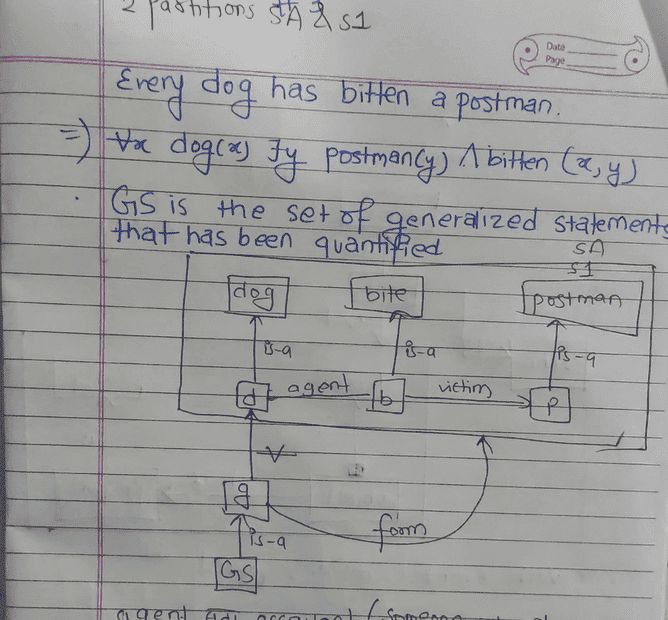 2 partitions SA & S1
Date
Page
Every dog has bitten a postman.
=) ∀x dog(x) ∃y postman(y) ∧ bitten (x,y)
. GS is the set of generalized statements
that has been quantified
SA
S1
dog bite postman
is-a is-a is-a
d agent b victim p
∀
g
form
is-a
GS
agent